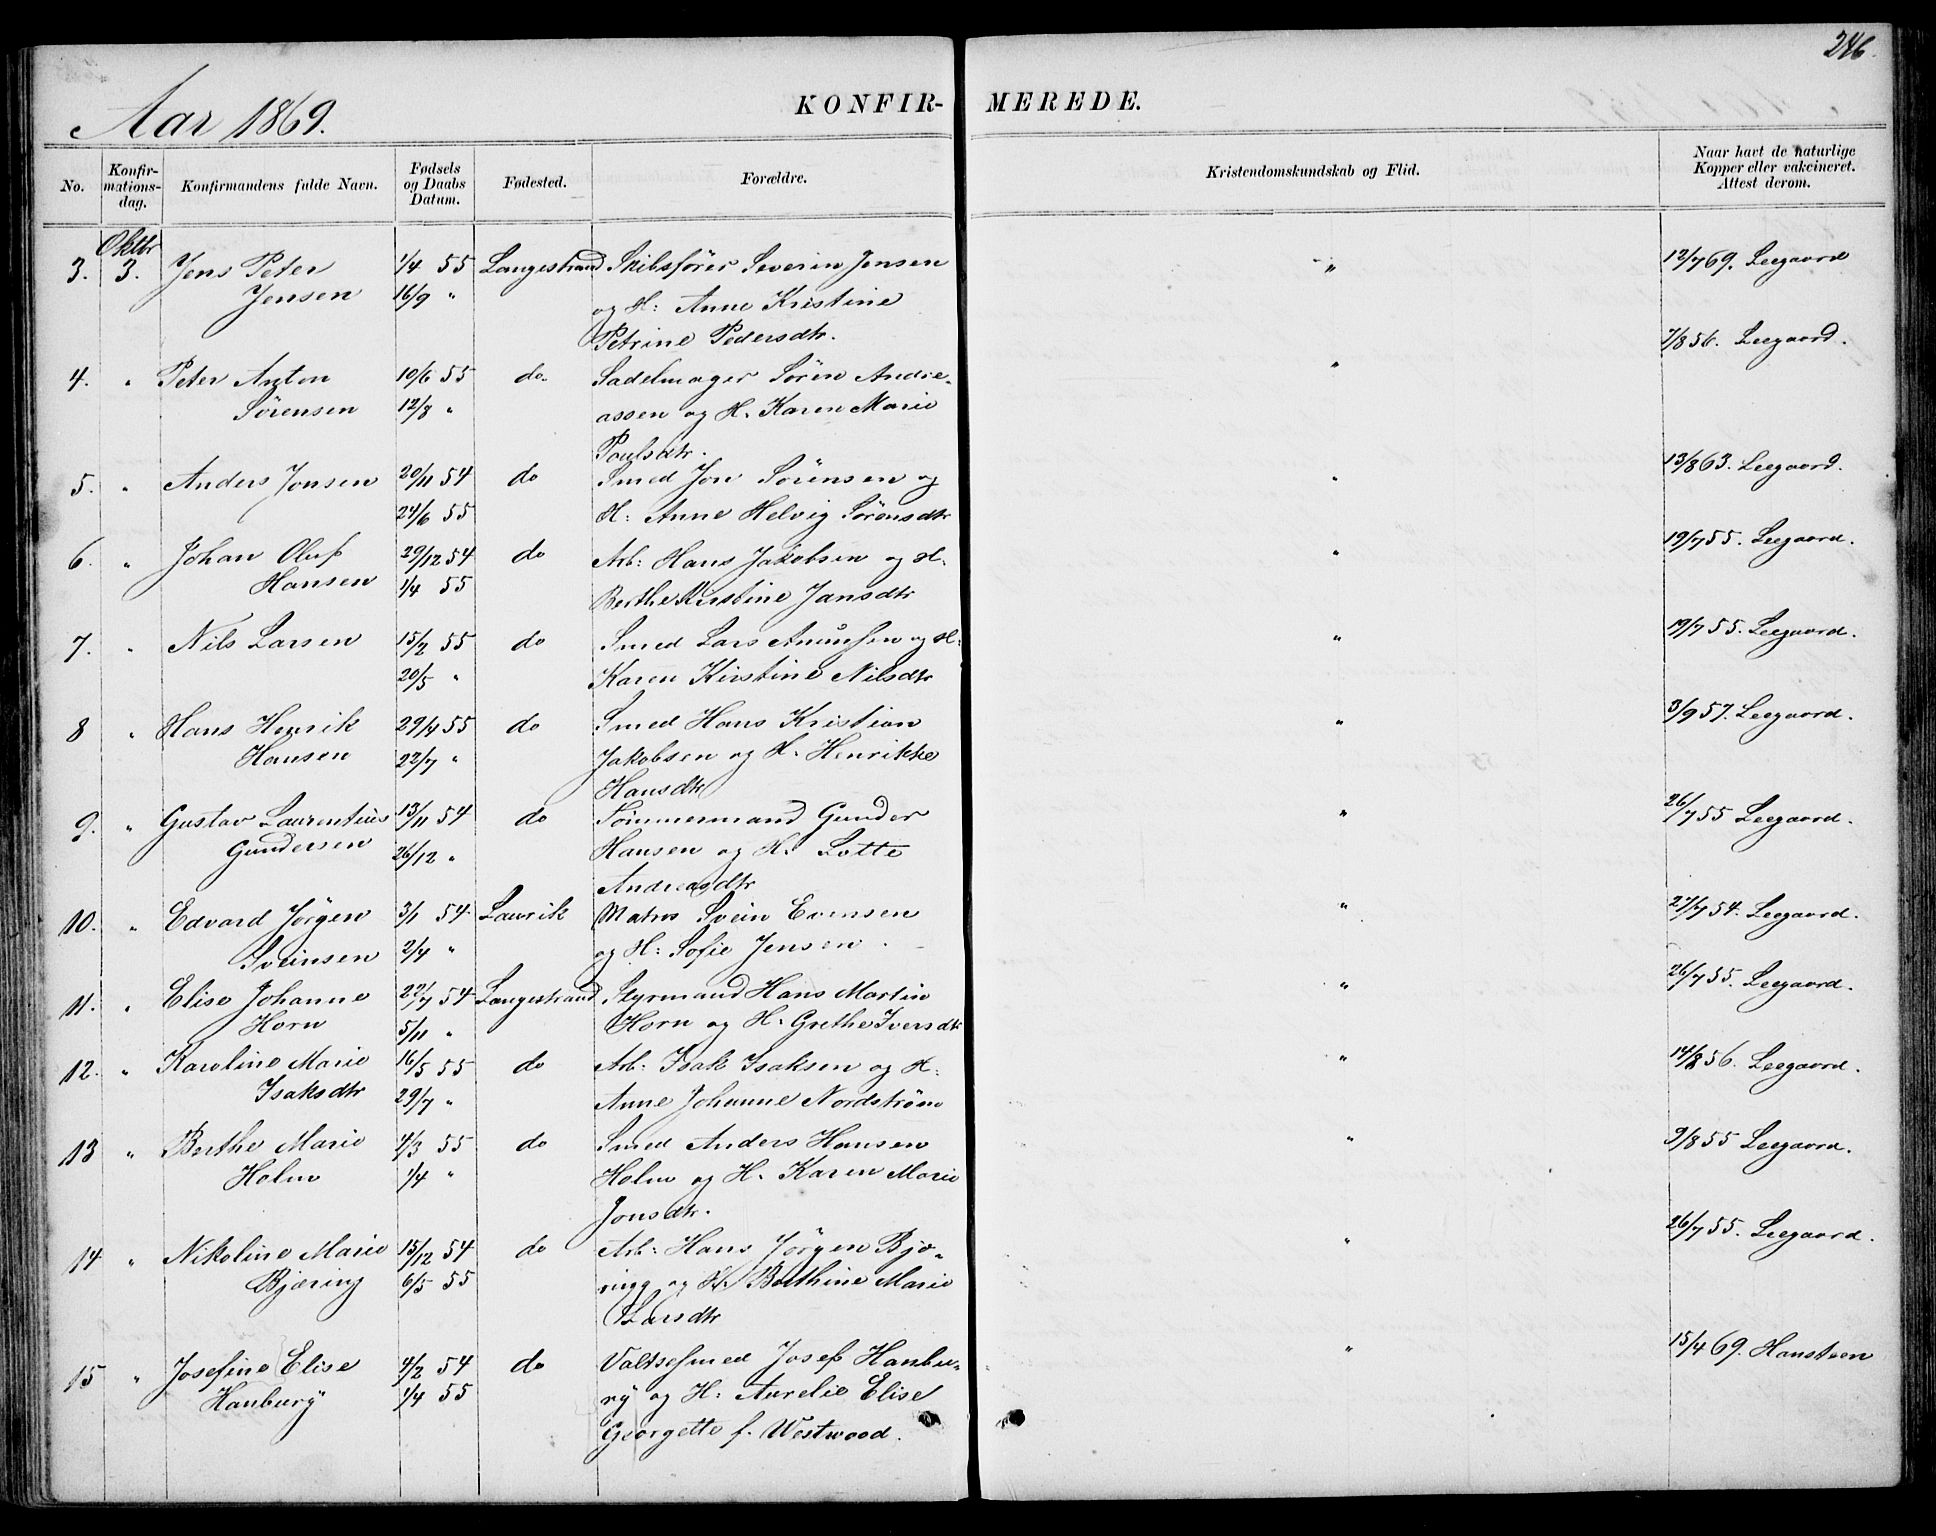 246.
Aar 1869.
KONFIR- MEREDE.
No.
Konfir-
mations-
dag.
Konfirmandens fulde Navn.
Fødsels
og Daabs
Datum.
Fødested.
Forældre.
Kristendomskundskab og Flid.
Naar havt de naturlige
Kopper eller vakcineret.
Attest derom.
Oktbr
3. 3. Jens Peter 1/4 55 Langestrand Skibsfører Severin Jensen " 12/7 69. Leegaard
Jensen 16/9 " og H: Anne Kristine
Petrine Pedersdtr.
4. " Peter Anton 10/6 55 do. Sadelmager Sören Andre- " 7/8 56. Leegaard.
Sörensen 12/8 " assen og H. Karen Marie
Poulsdtr.
5. " Anders Jonsen 20/11 54 do Smed Jon Sörensen og " 13/8 63. Leegaard.
24/6 55 H: Anne Helvig Sörensdtr
6. " Johan Oluf 29/12 54 do Arb: Hans Jakobsen og H. " 19/7 55. Leegaard.
Hansen 1/4 55 Berthe Kirstine Jansdtr
7. " Nils Larsen 15/2 55 do Smed Lars og H: " 19/7 55. Leegaard.
20/5 " Karen Kirstine Nilsdtr
8 " Hans Henrik 29/4 55 do Smed Hans Kristian " 3/9 57. Leegaard.
Hansen 22/7 " Jakobsen og H. Henrikke
Hansdtr
9. " Gustav Laurentius 13/11 54 do Tömmermand Gunder " 26/7 55 Leegaard.
Gundersen 26/12 " Hansen og H. Lotte
Andreasdtr
10. " Edvard Jörgen 3/1 54. Laurvik Matros Svein Evensen " 27/7 54. Leegaard.
Sveinsen 2/4 " og H: Sofie Jensen.
11. " Elise Johanne 22/7 54 Langestrand Styrmand Hans Martin " 26/7 55. Leegaard.
Horn 5/11 " Horn og H. Grethe Iversdtr
12. " Karoline Marie 16/5 55 do Arb: Isak Isaksen og H: " 14/8 56. Leegaard.
Isaksdtr 29/7 " Anne Johanne Nordström
13 " Berthe Marie 4/3 55 do Smed Anders Hansen " 9/8 55 Leegaard.
Holm 1/4 " Holm og H. Karen Marie
Jonsdtr.
14 " Nikoline Marie 15/12 54 do Arb: Hans Jörgen Bjæ- " 26/7 55. Leegaard.
Bjæring 6/5 55 ring og H. Berthine Marie
Larsdtr
15 " Josefine Elise 4/2 54 do Valtsesmed Josef Hanbu- " 15/4 69. Hansteen
Hanbury 1/4 55 ry og H: Aurelie Elise
Georgette f. Westwood.